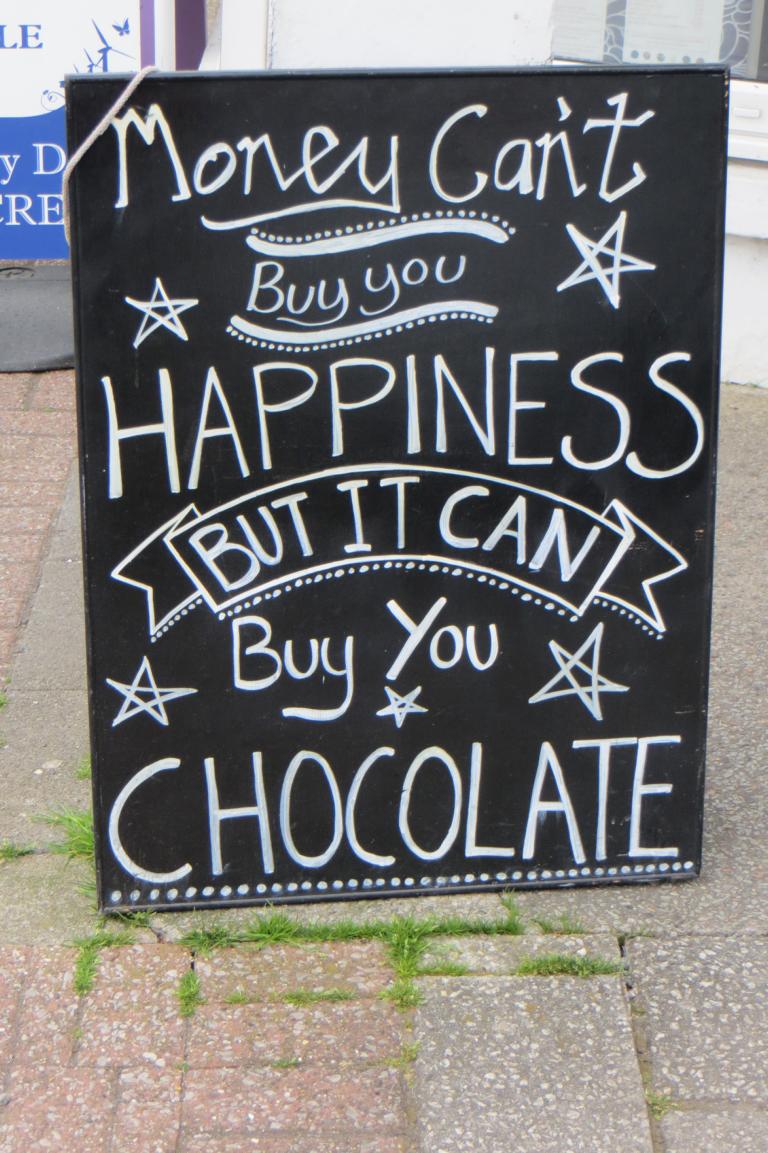 LE
y D
CRE
Money Can't
Buy you
HAPPINESS
BUT IT CAN
Buy You
CHOCOLATE